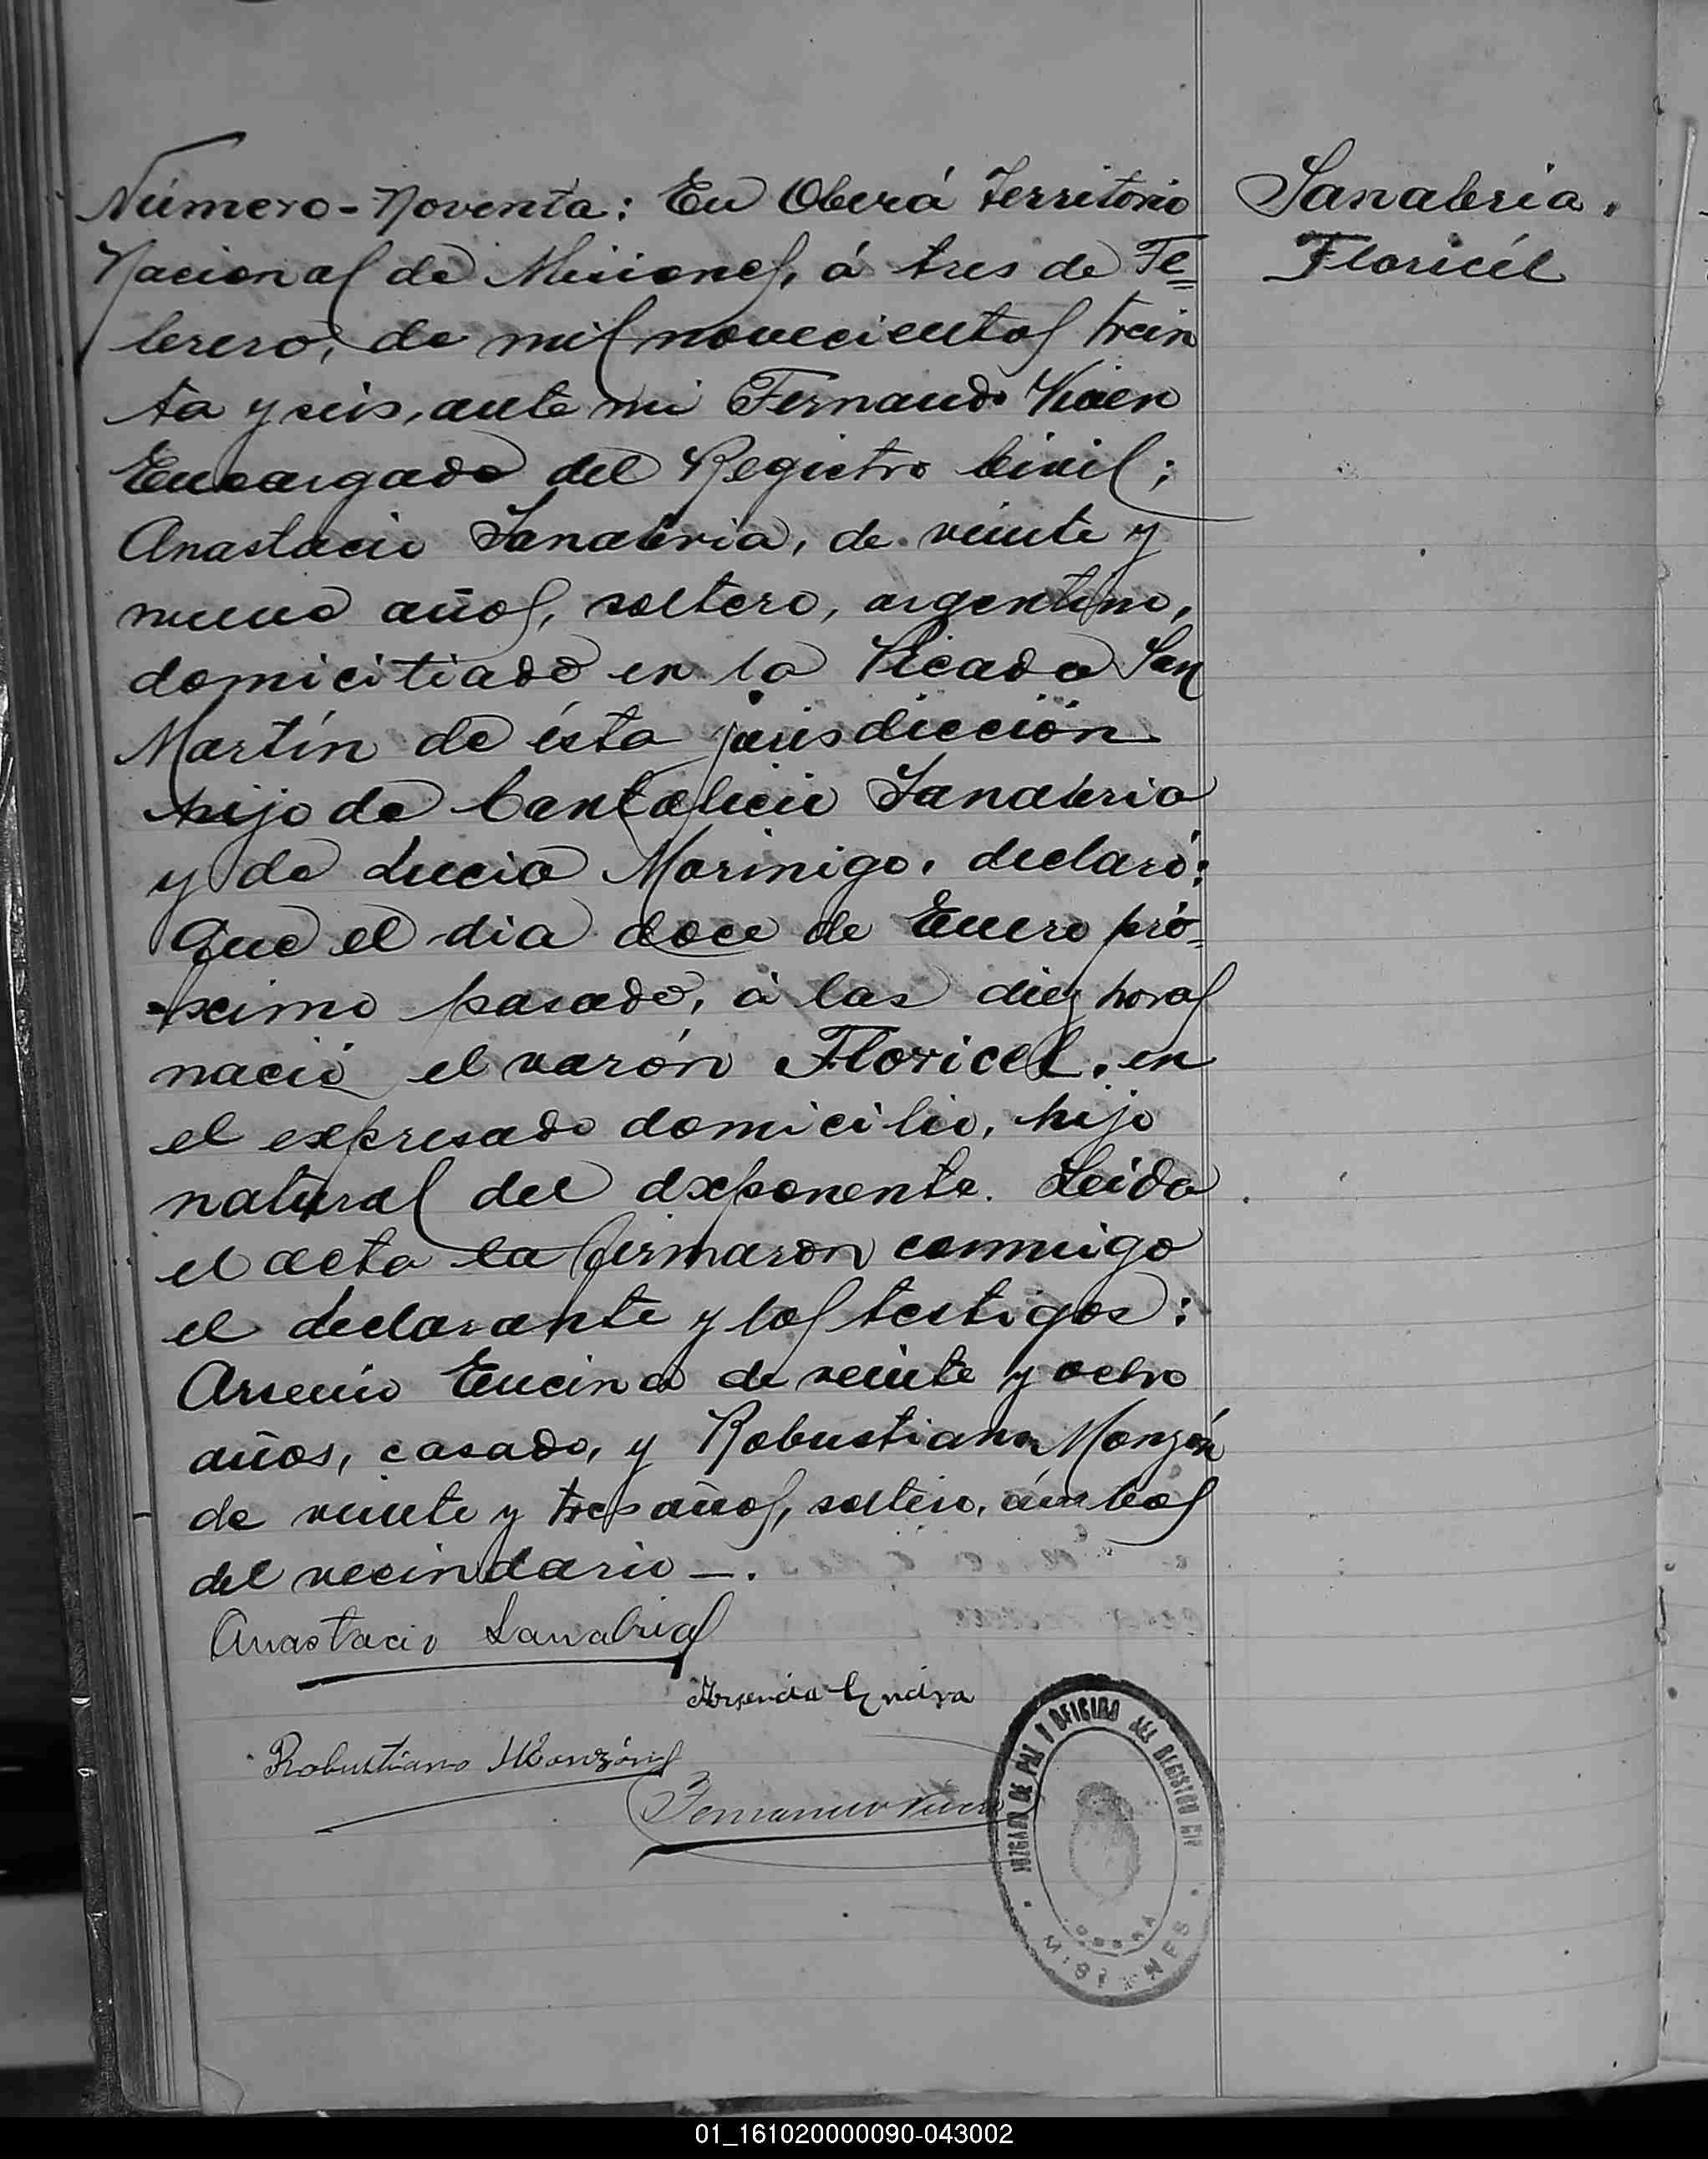 Número-Noventa: En Oberá Territorio
Nacional de Misiones, á tres de Fe=
brero, de mil novecientos trein
ta y seis, ante mi Fernando
Encargado del Registro Civil;
Anastacio Sanabria, de veinte y
nueve años, soltero, argentino,
domicitiado en la Picada San
Martín de ésta jurisdicción
hijo de Cantalicio Sanabria
y de Lucia Morinigo. declaró:
Que el dia doce de Enero pró=
=ximo pasado, á las diez horas
nació el varón Floricel. en
el expresado domicilio, hijo
natural del exponente. Leida
el acta la firmaron conmigo
el declarante y los testigos:
Arsenio Encina de veinte y ocho
años, casado, y Robustiano Monzón
de veinte y tres años, soltero, ámbos
del vecindario —.
Sanabria.
Floricél
Anastacio Sanabria
Arsenio Encina
Robustiano Monzón
Fernando
JUZGADO DE PAZ Y OFICINA DEL REGISTRO CIVIL
OBERÁ
MISIONES
01_161020000090-043002